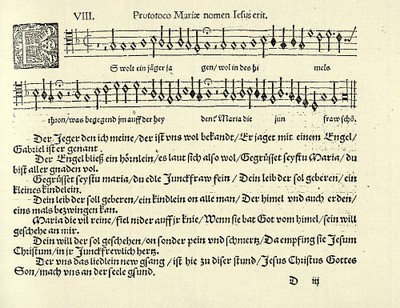 VIII. Prototoco Mariæ nomen Iesus erit.
ES wolt ein jäger ja gen/ wol in des hi mels
thron/ was begegend jm auff der hey den? Maria die jun fraw schö.
Der Jeger den ich meine/ der ist vns wol bekandt/ Er jaget mit einem Engel/
Gabriel ist er genant
Der Engel bließ ein hörnlein/ es laut sich also wol/ Gegrüsset seystu Maria/ du
bist aller gnaden vol.
Gegrüsset seystu maria/ du edle Junckfraw fein / Dein leib der sol geberen/ ein
kleines kindelein.
Dein leib der sol geberen/ ein kindelein on alle man/ Der himel vnd auch erden/
eins mals bezwingen kan.
Maria die vil reine/ fiel nider auff jr knie/ Wenn sie bat Got vom himel/ sein will
geschehe an mir.
Dein will der sol geschehen/ on sonder pein vnd schmertz/ Da empfing sie Jesum
Christum/ in jr Junckfrewlich hertz.
Der vns das liedlein new gsang / ist hie zu diser stund/ Jesus Christus Gottes
Son/ mach vns an der seele gsund.
D iij